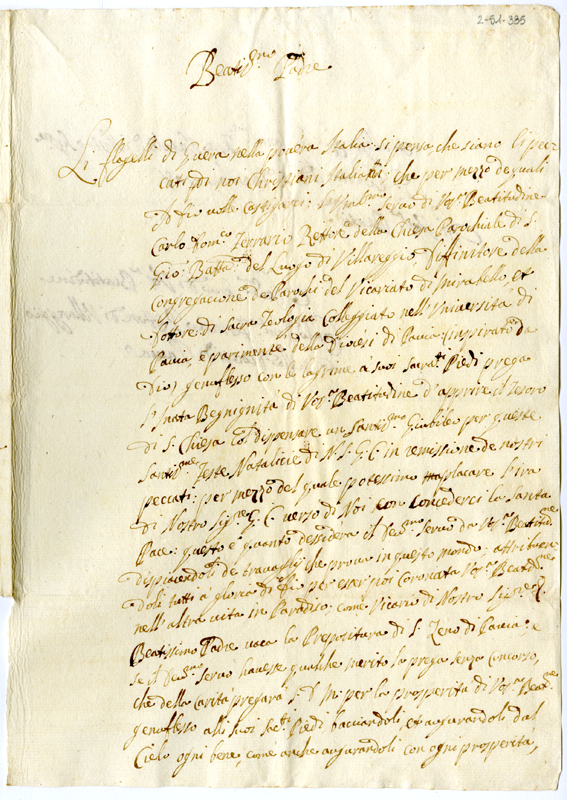 2-51-335
Beatis.mo Padre
Li flagelli di Guera nella povera Italia: si pensa che siano li pec-
cati, di noi Christiani Italiani: che per mezzo de quali
Iddio volle castigarci: humilmo servo di Vos.a Beatitudine
Carlo Dom.co Ferrario Rettore della Chiesa Parochiale di S.
Gio: Batta: del Luogo di Villareggio, Diffinitore della
Congregatione de Parochi del Vicariato di Mirabello et
Dottore di Sacra Teologia Colleggiato nell'Università di
Pavia, e parimente della Diocesi di Pavia (inspirato da
Dio) genuflesso con le lagrime a suoi sacra.ti Piedi prega
l'innata Begnignità di Vos.a Beatitudine d'apprire il Tesoro
di S. Chiesa col dispensare un Santis.mo Giubileo per queste
Santis.me Feste Natalicie di N. S. G. C. in remissione de nostri
peccati: per mezzo del quale potessimo placare l'ira
di Nostro Sig.re G. C. verso di Noi con concederci la Santa
Pace: questo è quanto desidera il Dev.mo servo da Vos.a Beatitud.ne
dispiacendoli de travaglij che prova in questo mondo: attribuen
doli tutti a gloria di Dio per esser poi Coronata Vos.a Beatid.ne
nell'altra vita in Paradiso come Vicario di Nostro Sig.re G. C.
Beatissimo Padre vaca la Prepositura di S. Zeno di Pavia: e
se il Dev.mo servo havesse qualche merito la prega senza Concorso,
che della Carità pregarà S. D. M. per la prosperità di Vos.a Beatd.ne
genuflesso alli suoi Sac.ti Piedi bacciandoli et augurandoli dal
Cielo ogni bene, come anche augurandoli con ogni prosperità,